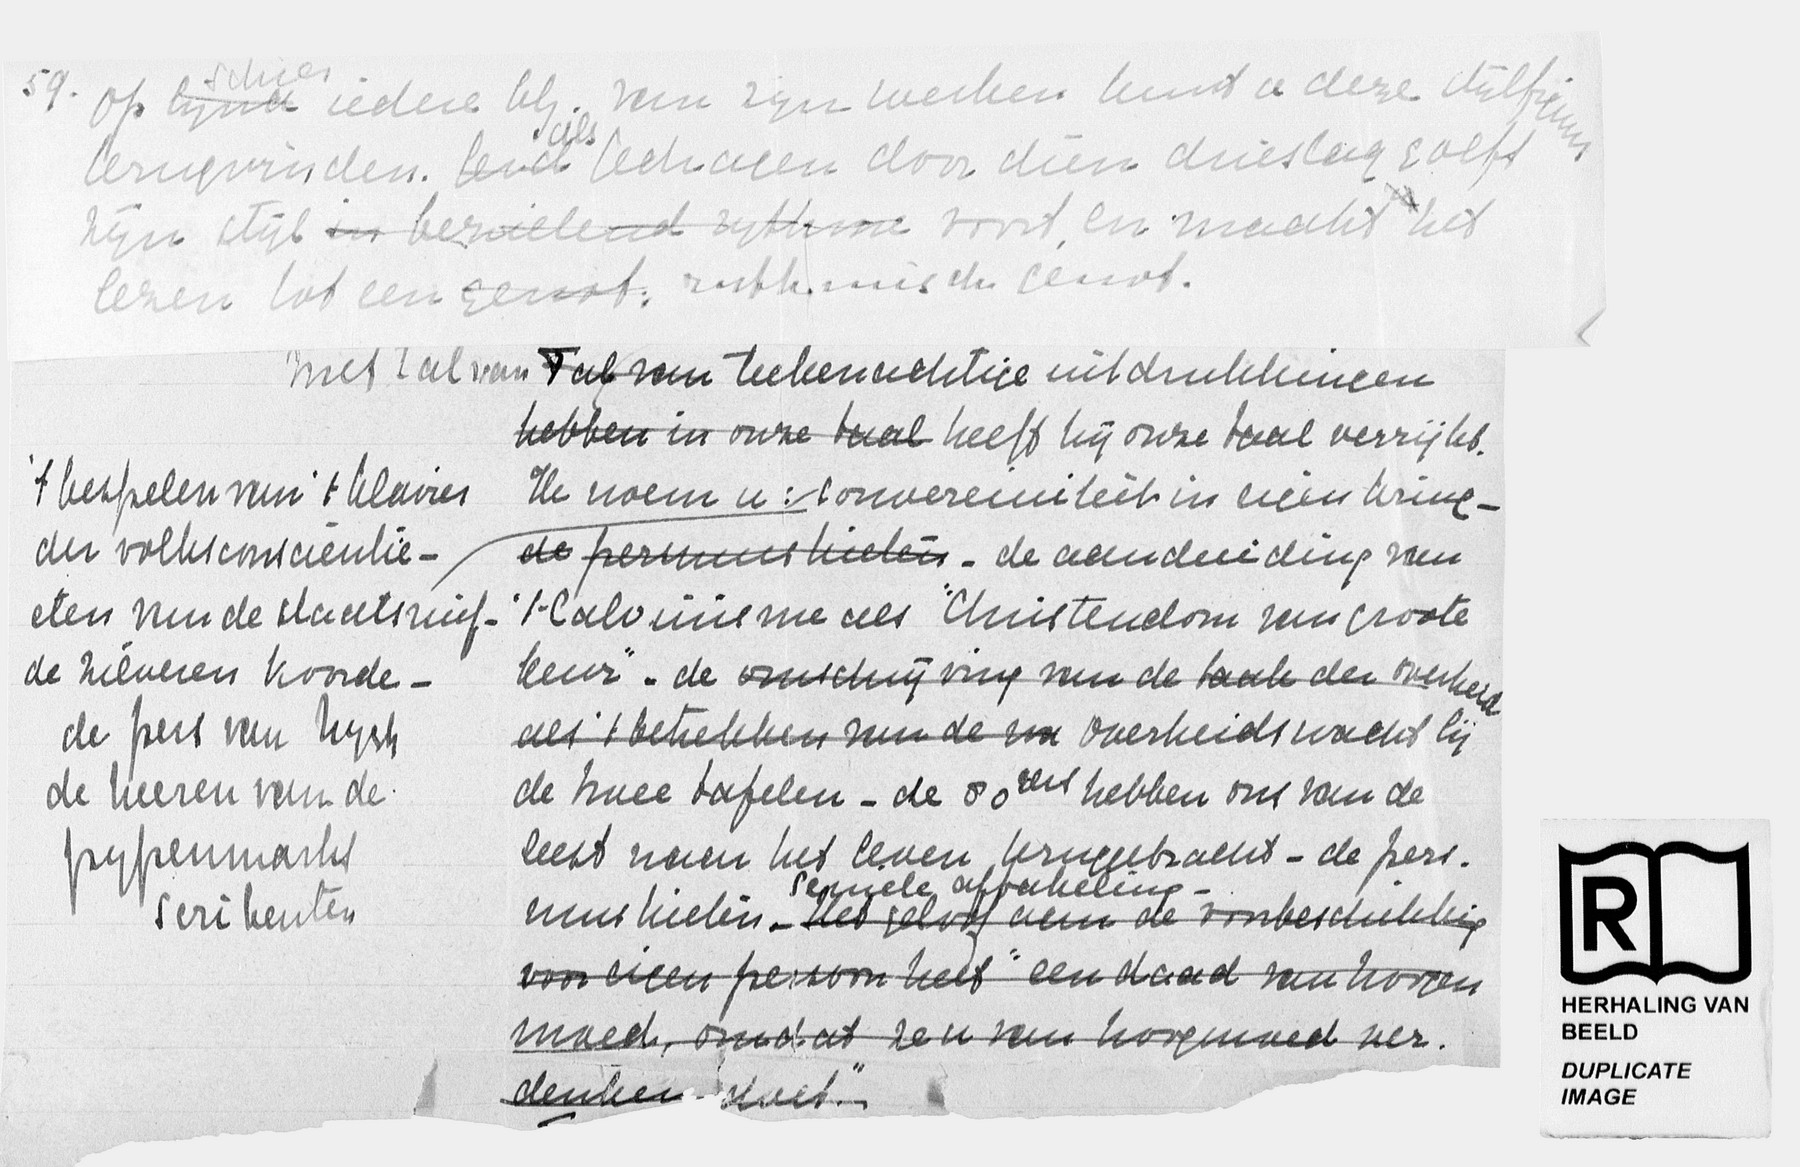 59. Op bijna schier iedere blz. van zijn werken kunt u deze stijlfiguur
terugvinden. Gedragen door dien drieslag golft
zijn stijl in bezielend rythme voort, en maakt het
lezen tot een genot. rythmisch genot.
Met tal van Tal van teekenachtige uitdrukkingen
hebben in onze taal heeft hij onze taal verrijkt.
Ik noem u: souvereiniteit in eigen kring -
de permuskieten - de aanduiding van
't Calvinisme als "Christendom van groote
keur" - de omschrijving van de taak der overheid
als 't betrekken van de overheidswacht bij
de twee tafelen - de 80ers hebben ons van de
leest naar het leven teruggebracht - de pers-
muskieten. - seniele aftakeling -
Het geloof aan de voorbeschikking
voor eigen persoon heet "een daad van hoogen
moed, omdat ze u van hoogmoed ver-
denken doet." -
't bespelen van 't klavier
der volksconsciëntie -
eten van de staatsruif -
de zilveren koorde -
de pers van
de heeren van de
pypenmarkt
scribenten
R
HERHALING VAN
BEELD
DUPLICATE
IMAGE